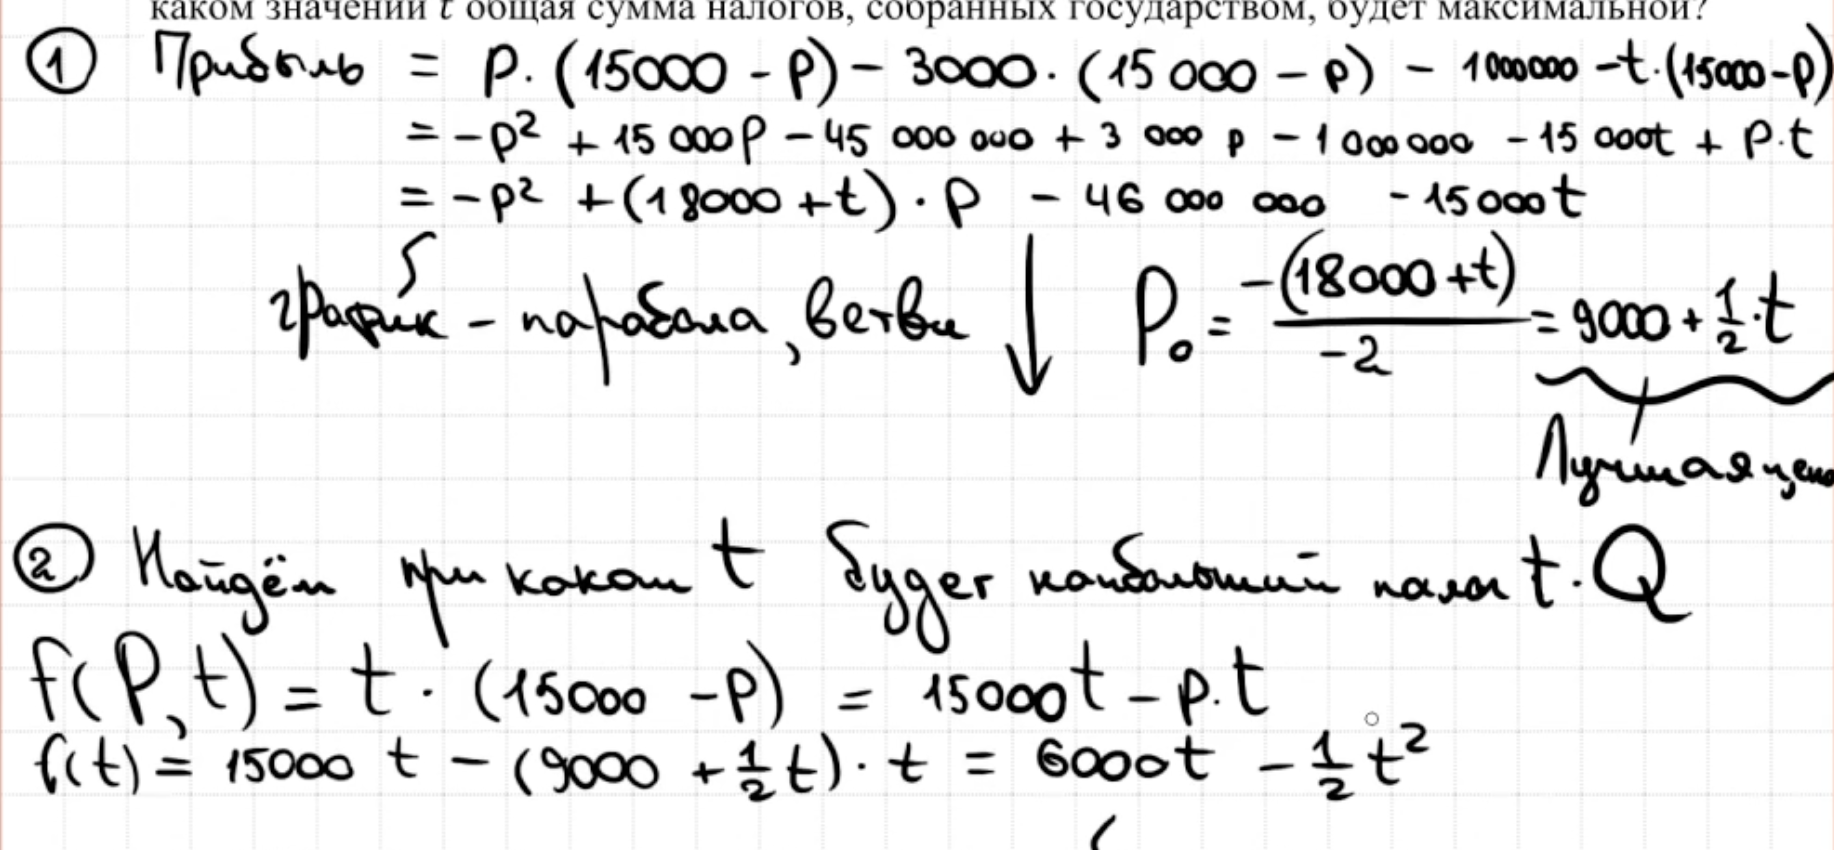 каком значении t общая сумма налогов, собранных государством, будет максимальной?
① Прибыль = P · (15000 - P) - 3000 · (15 000 - P) - 1 000 000 - t · (15000 - P)
= -P² + 15 000P - 45 000 000 + 3 000 P - 1 000 000 - 15 000t + P·t
= -P² + (18000 + t) · P - 46 000 000 - 15 000t
график - парабола, ветви ↓ P₀ = -(18000 + t) / -2 = 9000 + 1/2 · t
Лучшая цена
② Найдём при каком t будет наибольший налог t · Q
f(P, t) = t · (15000 - P) = 15000t - P·t
f(t) = 15000 t - (9000 + 1/2 t) · t = 6000t - 1/2 t²
(